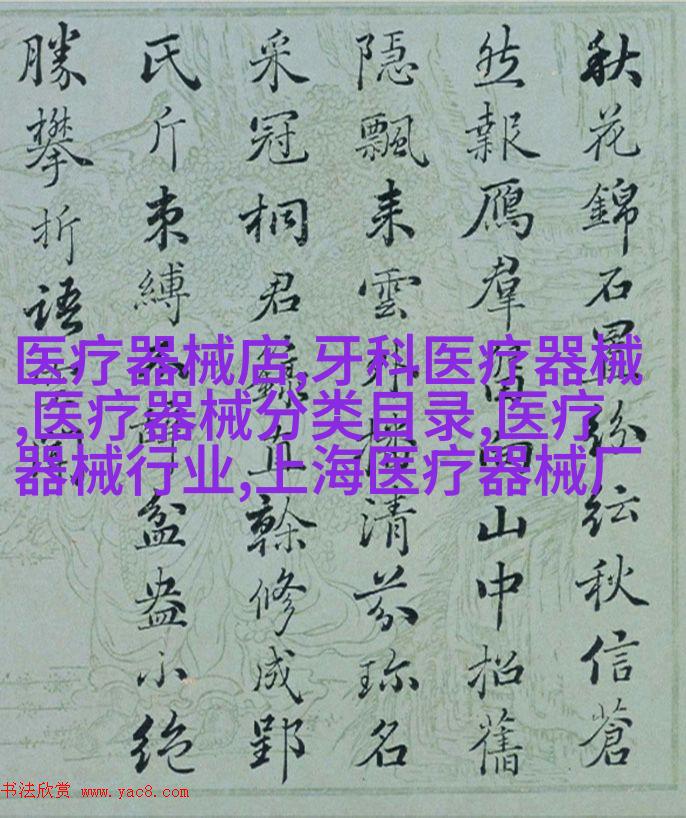 秋花錦石紛紜秋信蒼
然報鴈羣向山中招舊
隱飄来雲清芬珎名
采冠桐君錄直榦修成郢
氏斤束縛辭盆盎小絶
勝攀折語
医疗器械店,牙科医疗器械
,医疗器械分类目录,医疗
器械行业,上海医疗器械厂
书法欣赏 www.yac8.com